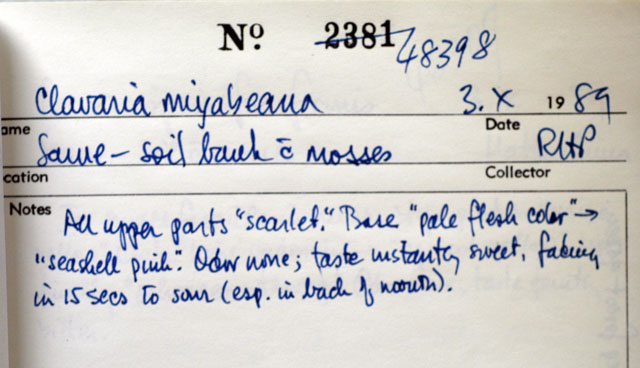 Nº 2381 48398
Clavaria miyabeana 3. X 19 89
ame Date
Same - soil bank c̄ mosses RHP
cation Collector
Notes All upper parts "scarlet." Base "pale flesh color" →
"seashell pink". Odor none; taste instantly sweet, fading
in 15 secs to sour (esp. in back of mouth).